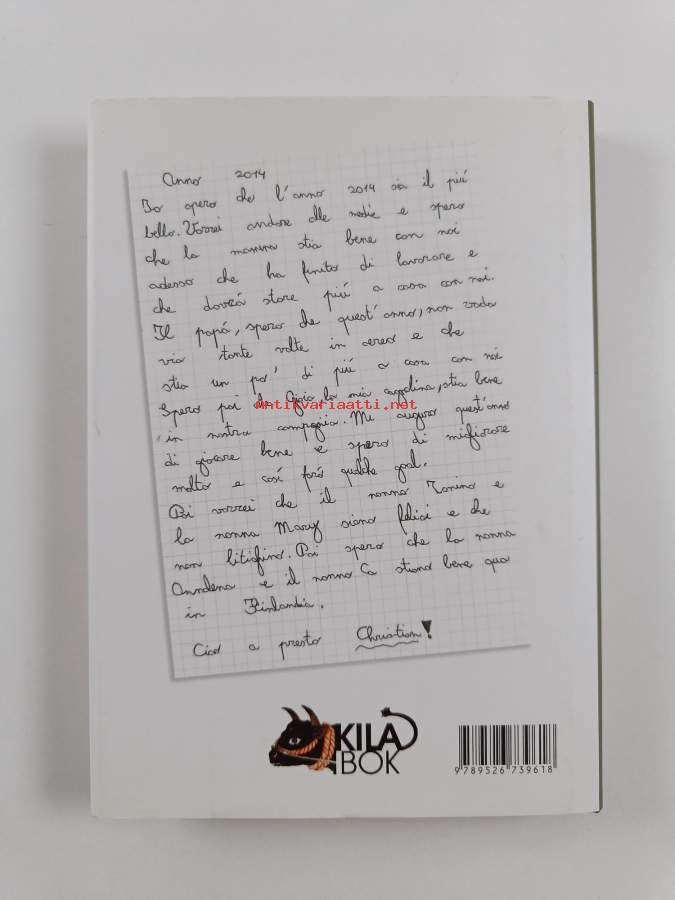 Anno 2014
Io spero che l'anno 2014 sia il piú
bello. Vorrei andare alle medie e spero
che la mamma stia bene con noi
adesso che ha finito di lavorare e
che dovrá stare piú a casa con noi.
Il papá, spero che quest'anno, non vada
via tante volte in aereo e che
stia un po' di piú a casa con noi.
Spero poi che Gioia la mia cugina, stia bene
in nostra compagnia. Mi auguro quest'anno
di giocare bene e spero di migliorare
molto e cosí faró qualche goal.
Poi vorrei che il nonno Tonino e
la nonna Mary siano felici e che
non litighino. Poi spero che la nonna
e il nonno Ca stiano bene qua
in Finlandia.
Ciao a presto Christian!
antikvariaatti.net
KILA
BOK
9 789526 739618